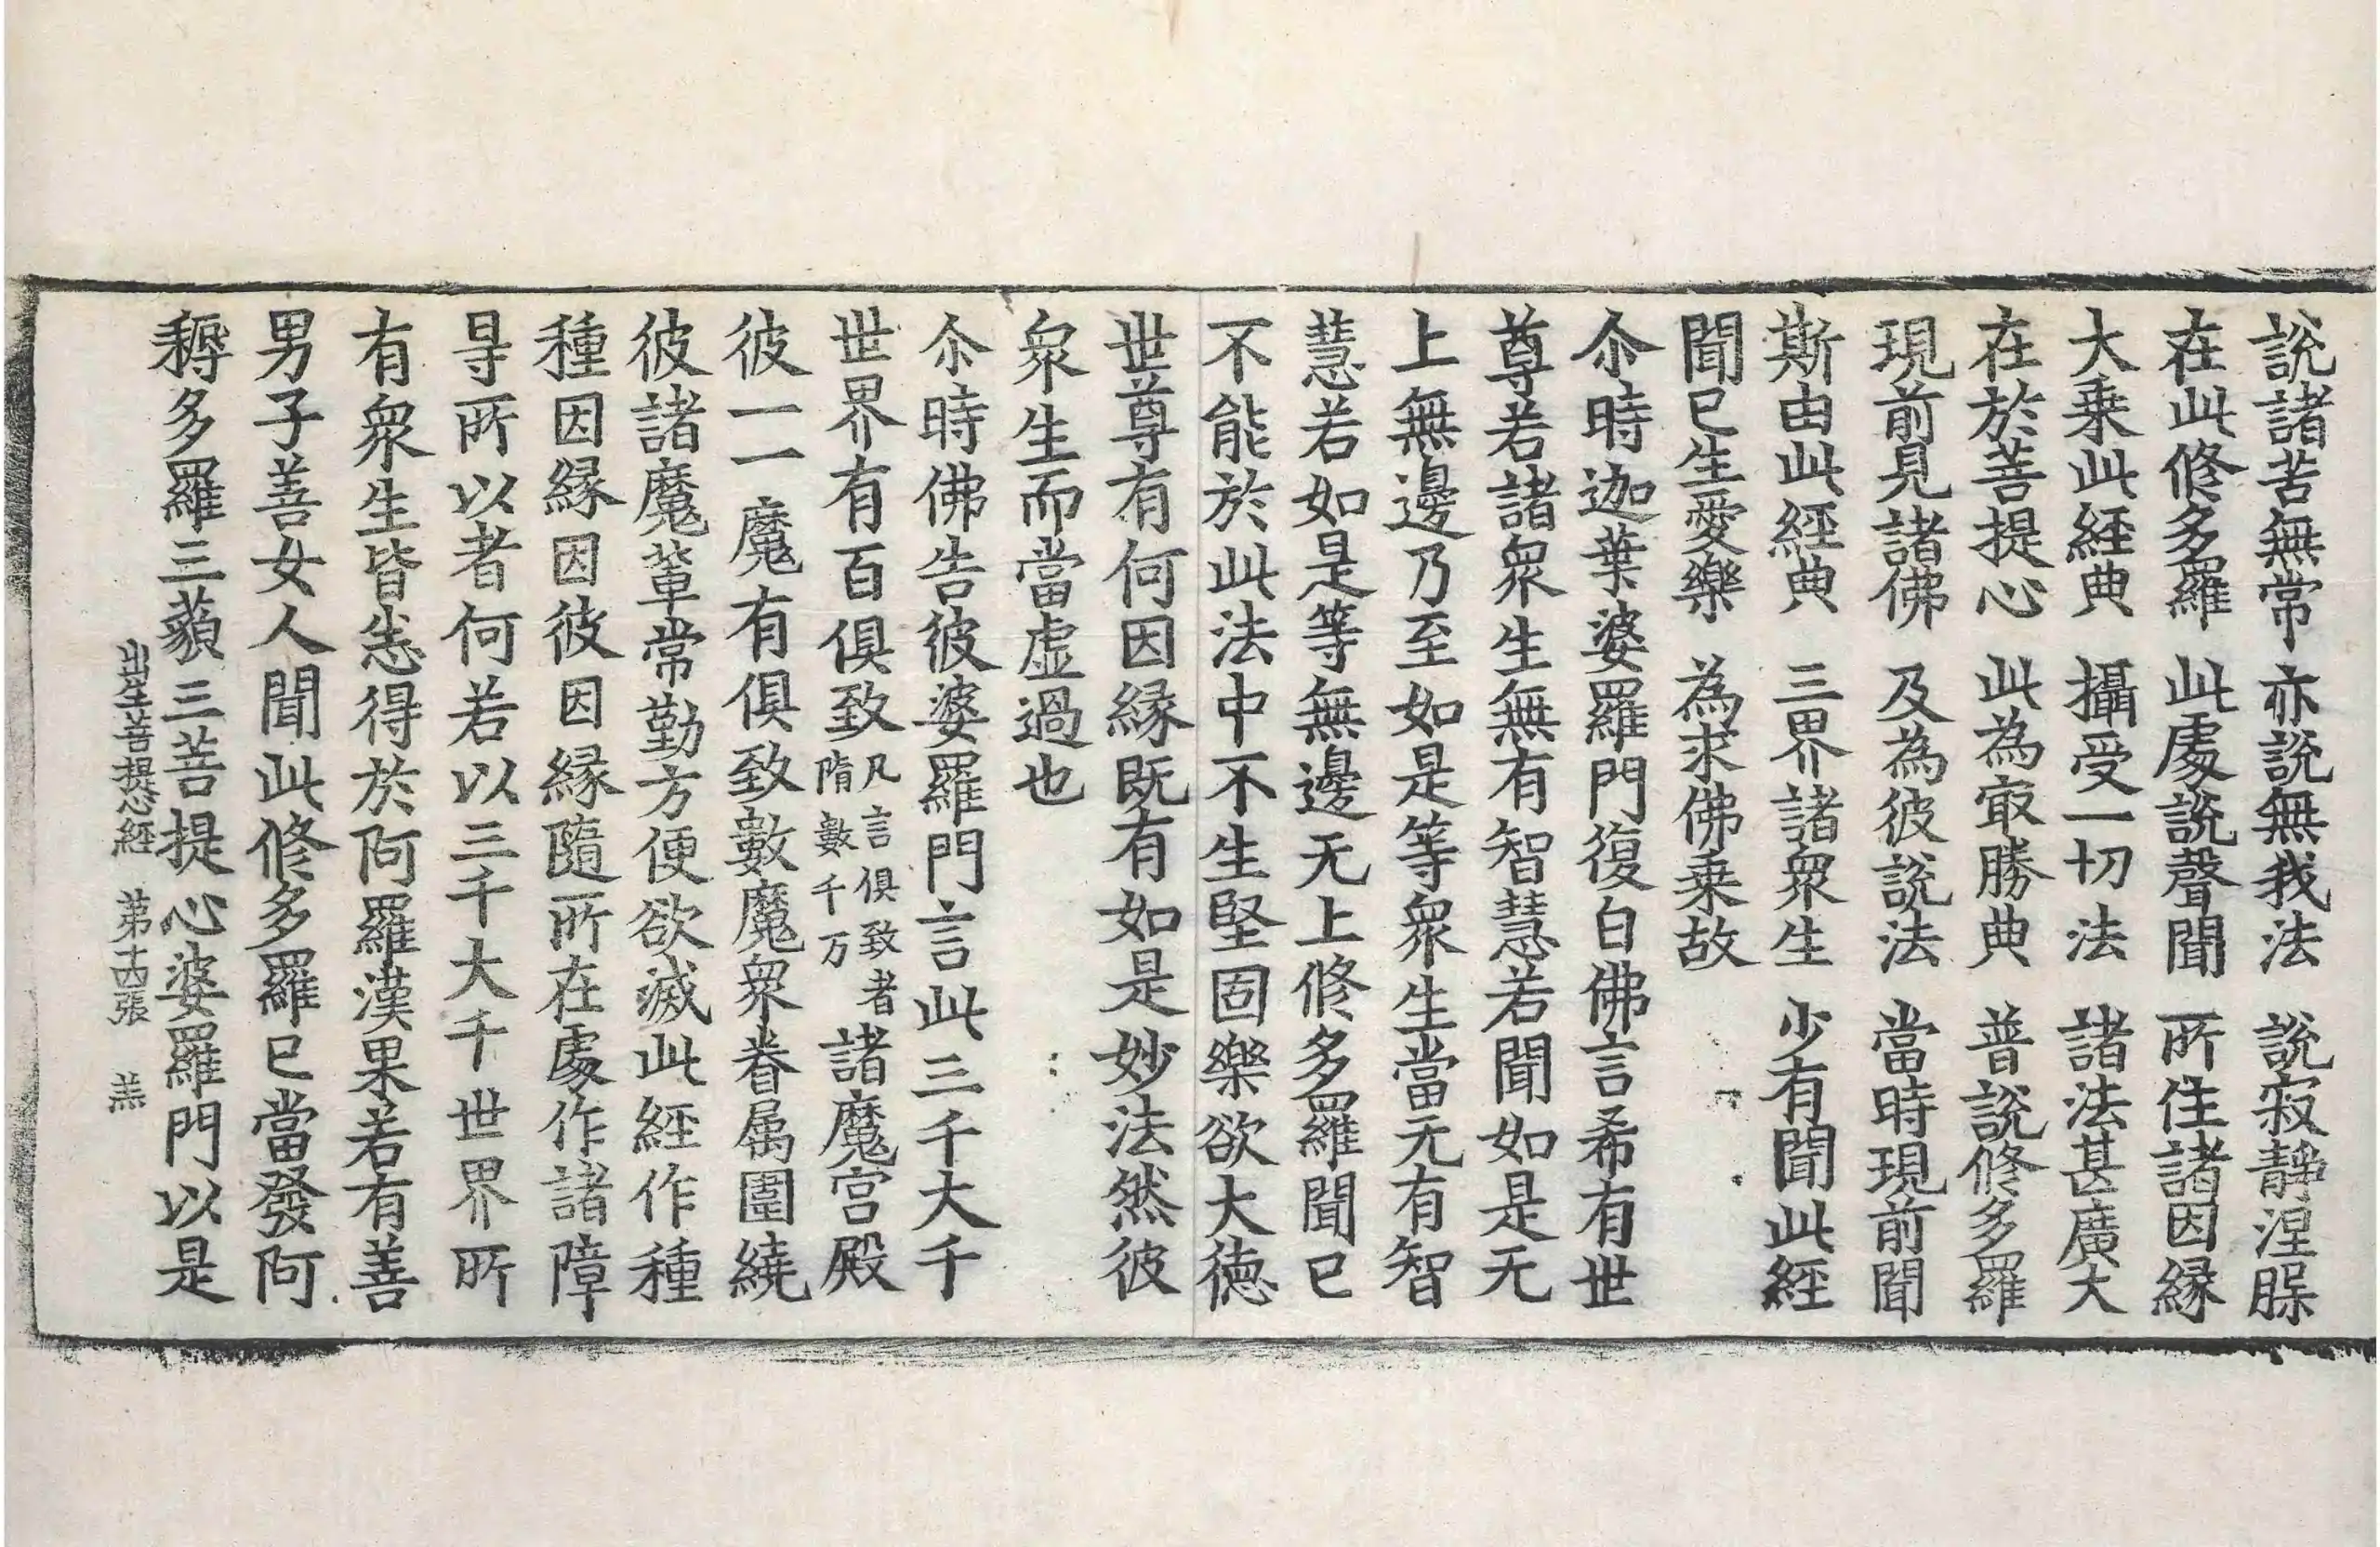 說諸苦無常　亦說無我法　說寂靜涅槃
在此修多羅　此處說聲聞　所住諸因緣
大乘此經典　攝受一切法　諸法甚廣大
在於菩提心　此為寂勝典　普說修多羅
現前見諸佛　及為彼說法　當時現前聞
斯由此經典　三界諸衆生　少有聞此經
聞已生愛樂　為求佛乘故
尒時迦葉婆羅門復白佛言希有世
尊若諸衆生無有智慧若聞如是无
上無邊乃至如是等衆生當无有智
慧若如是等無邊无上修多羅聞已
不能於此法中不生堅固樂欲大德
世尊有何因緣既有如是妙法然彼
衆生而當虛過也
尒時佛告彼婆羅門言此三千大千
世界有百俱致凡言俱致者隋數千万諸魔宫殿
彼一一魔有俱致數魔衆眷属圍繞
彼諸魔軰常勤方便欲滅此經作種
種因緣因彼因緣隨所在處作諸障
㝵所以者何若以三千大千世界所
有衆生皆悉得於阿羅漢果若有善
男子善女人聞此修多羅已當發阿
耨多羅三藐三菩提心婆羅門以是
出生菩提心經　苐十四張　羔